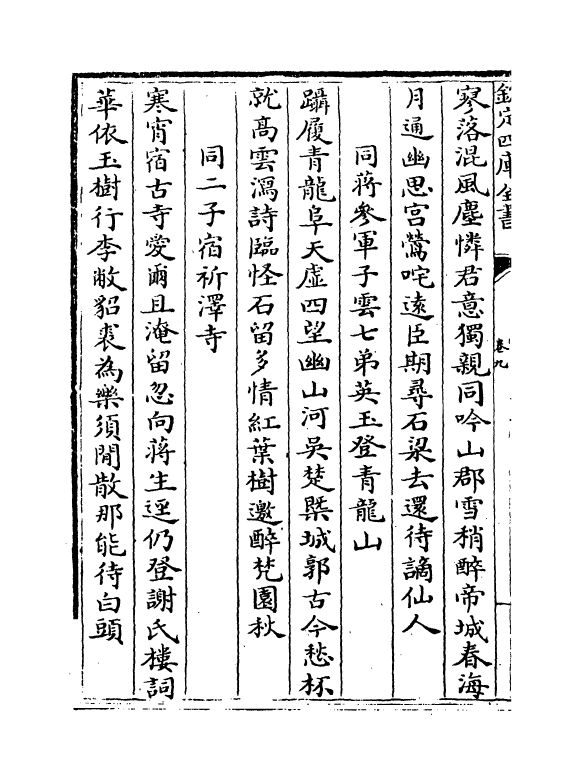 欽定四庫全書
卷九
寥落混風塵憐君意獨親同吟山郡雪稍醉帝城春海
月通幽思宮鶯咤遠臣期尋石梁去還待謫仙人
同蔣參軍子雲七弟英玉登青龍山
躡履青龍阜天虛四望幽山河吳楚槩城郭古今愁杯
就高雲瀉詩臨怪石留多情紅葉樹邀醉梵園秋
同二子宿祈澤寺
寒宵宿古寺愛爾且淹留忽向蔣生逕仍登謝氏樓詞
華依玉樹行李敝貂裘為樂須閒散那能待白頭